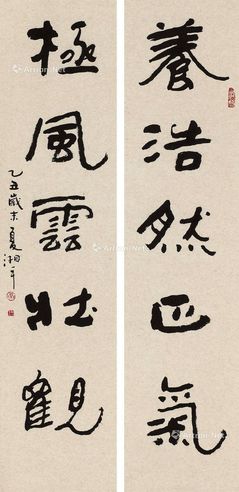 養浩然正氣
極風雲壯觀
乙丑歲末夏湘平